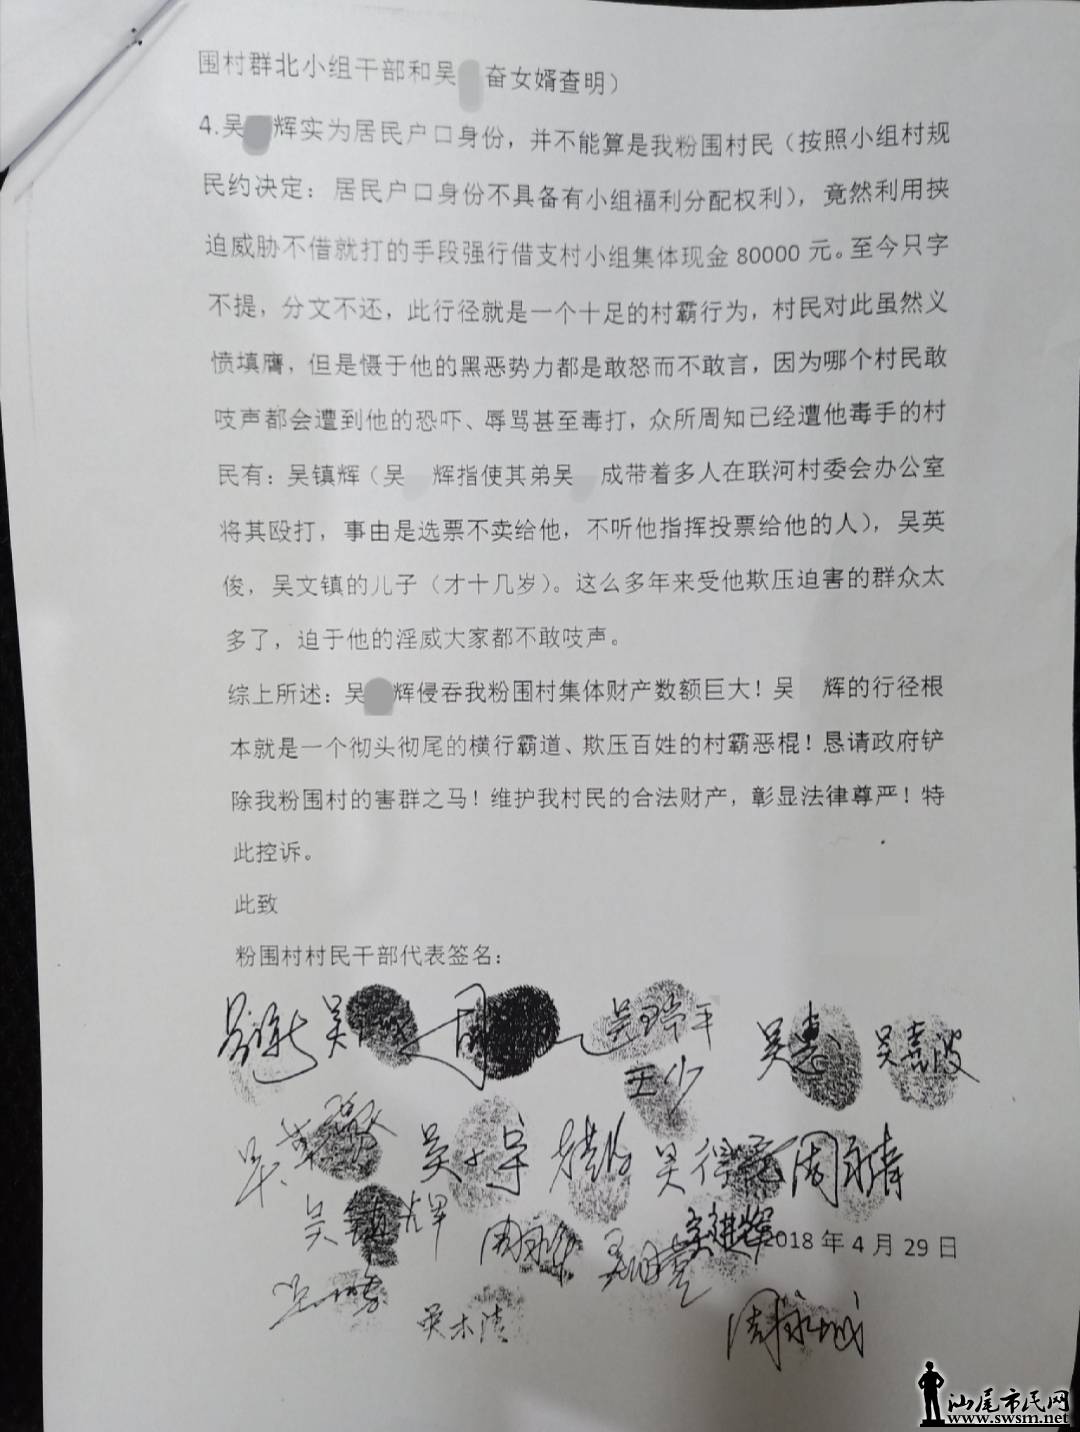 围村群北小组干部和吴 奋女婿查明）
4.吴 辉实为居民户口身份，并不能算是我粉围村民（按照小组村规
民约决定：居民户口身份不具备有小组福利分配权利），竟然利用挟
迫威胁不借就打的手段强行借支村小组集体现金 80000 元。至今只字
不提，分文不还，此行径就是一个十足的村霸行为，村民对此虽然义
愤填膺，但是慑于他的黑恶势力都是敢怒而不敢言，因为哪个村民敢
吱声都会遭到他的恐吓、辱骂甚至毒打，众所周知已经遭他毒手的村
民有：吴镇辉（吴 辉指使其弟吴 成带着多人在联河村委会办公室
将其殴打，事由是选票不卖给他，不听他指挥投票给他的人），吴英
俊，吴文镇的儿子（才十几岁）。这么多年来受他欺压迫害的群众太
多了，迫于他的淫威大家都不敢吱声。
综上所述：吴 辉侵吞我粉围村集体财产数额巨大！吴 辉的行径根
本就是一个彻头彻尾的横行霸道、欺压百姓的村霸恶棍！恳请政府铲
除我粉围村的害群之马！维护我村民的合法财产，彰显法律尊严！特
此控诉。
此致
粉围村村民干部代表签名：
吴 周 吴 平 吴惠 吴 波
王少
吴 吴 宇 吴得 周永青
吴镇辉 周永华
2018 年 4 月 29 日
吴木清 周永城
汕尾市民网
www.swsm.net